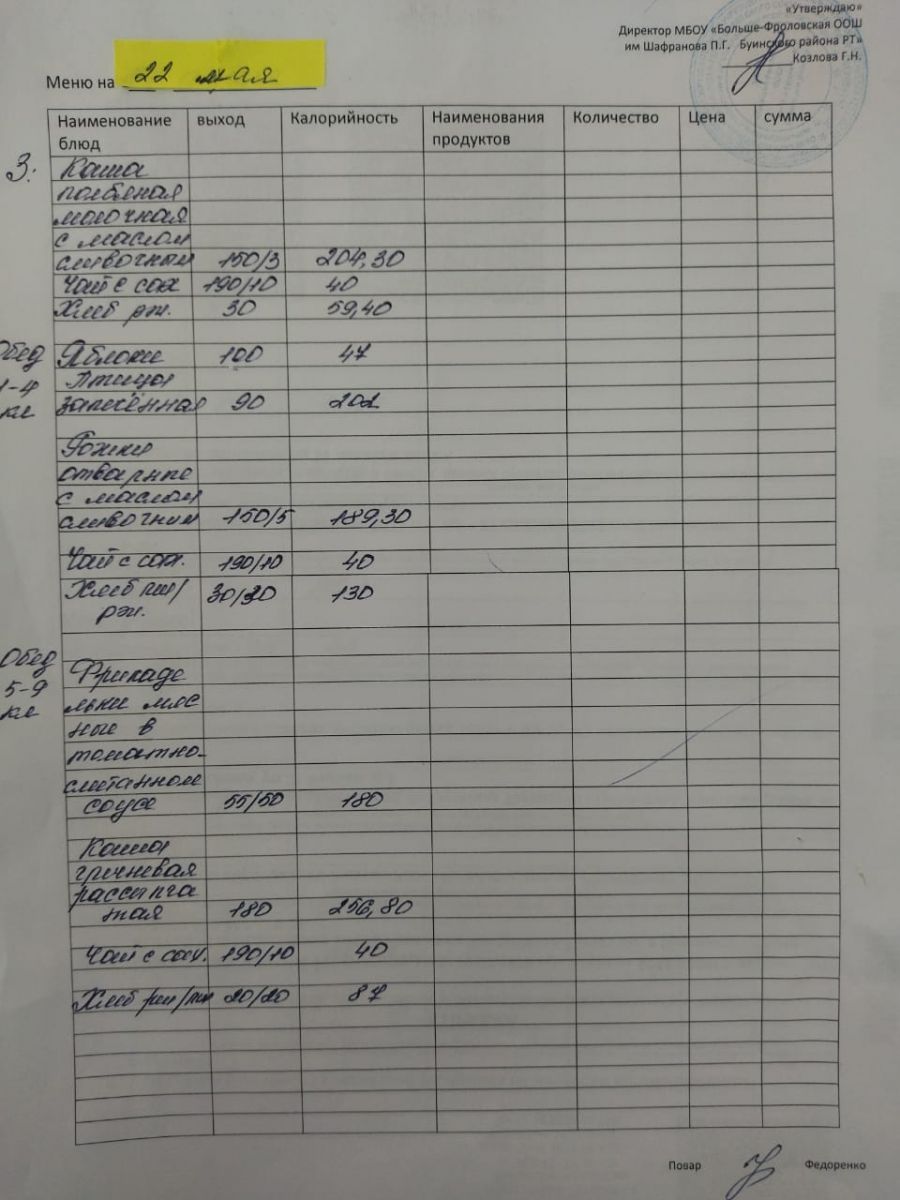 «Утверждаю»
Директор МБОУ «Больше-Фроловская ООШ
им Шафранова П.Г. Буинского района РТ»
Козлова Г.Н.
Меню на 22 мая
Наименование блюд выход Калорийность Наименования продуктов Количество Цена сумма
З. Каша
полбяная
молочная
с маслом
сливочным 150/3 204,30
Чай с сах 190/10 40
Хлеб рж. 30 59,40
Обед Яблоки 100 47
1-4 Птица
кл запечённая 90 202
Рожки
отварные
с маслом
сливочным 150/5 189,30
Чай с сах. 190/10 40
Хлеб пш/ 30/30 130
рж.
Обед Фрикаде
5-9 льки мяс
кл ные в
томатно-
сметанном
соусе 55/50 180
Каша
гречневая
рассыпча
тая 180 256,80
Чай с сах. 190/10 40
Хлеб 20/20 87
Повар Федоренко